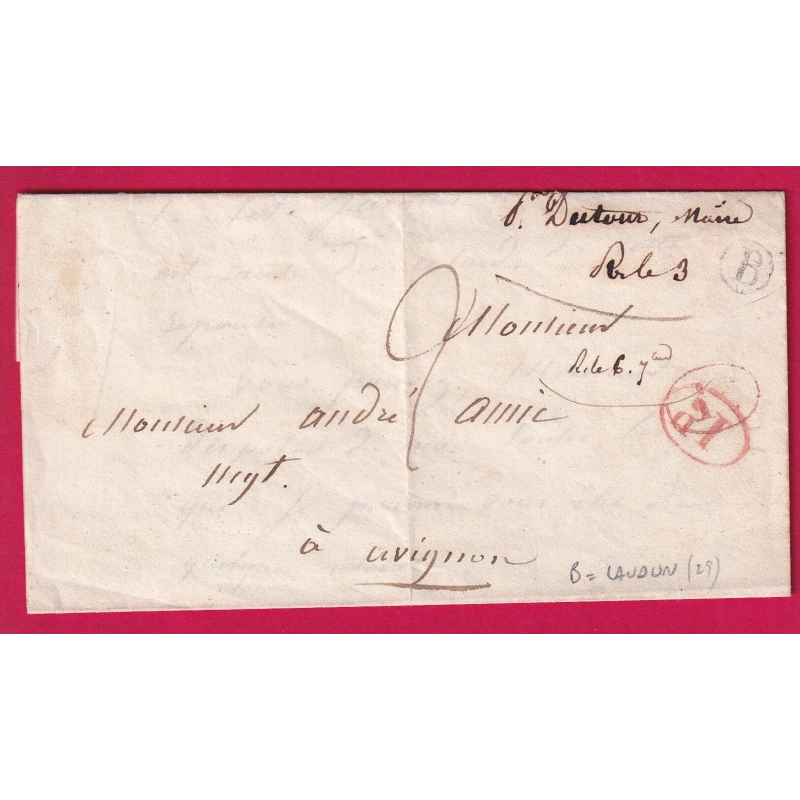 Dutour, Maire
B
R.le 3
Monsieur
R.le 6. 7
2
Monsieur andré amic
Negt.
à avignon
B = LAUDUN (29)